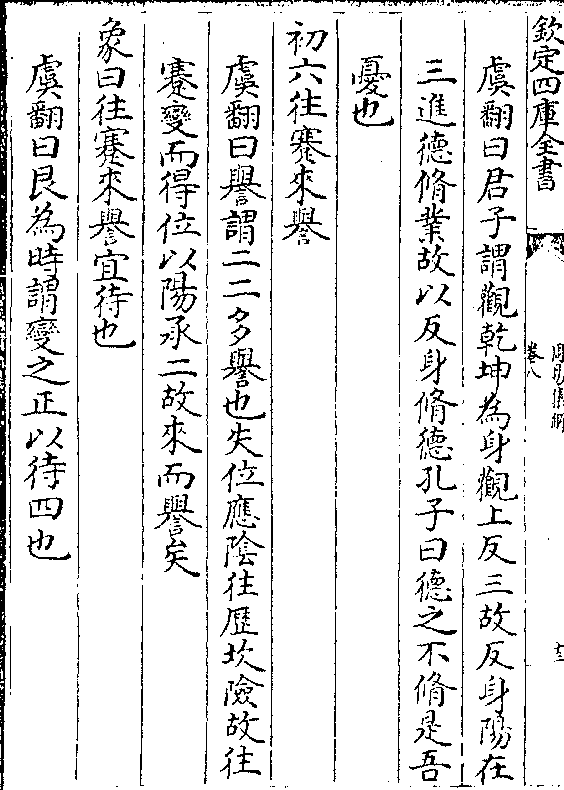 欽定四庫全書
卷八
十三
虞翻曰君子謂觀乾坤為身觀上反三故反身陽在
三進德脩業故以反身脩德孔子曰德之不脩是吾
憂也
初六往蹇來譽
虞翻曰譽謂二二多譽也失位應陰往歷坎險故往
蹇變而得位以陽承二故來而譽矣
象曰往蹇來譽宜待也
虞翻曰艮為時謂變之正以待四也